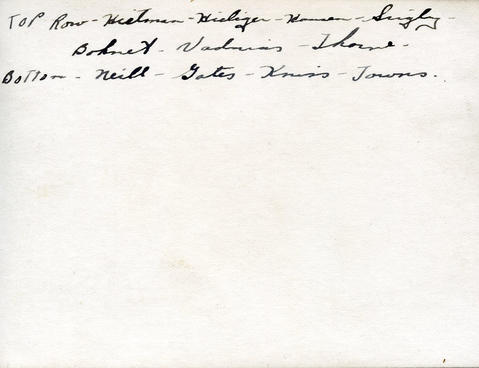 TOP Row - Hietman - Hieliger - Hansen - Suigly -
Bohnet - Vadnias - Thorne -
Bottom - Neill - Gates - Kniss - Towns.